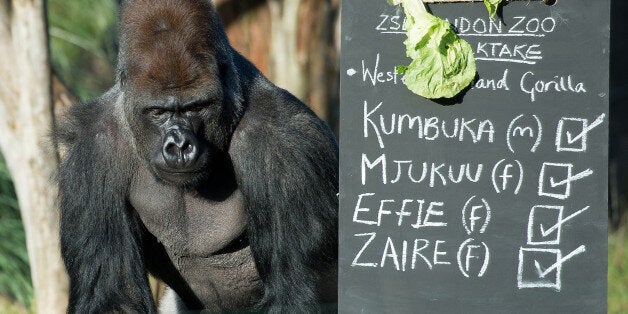 ZS NDON ZOO
KTAKE
• West and Gorilla
KUMBUKA (m) ☑
MJUKUU (f) ☑
EFFIE (f) ☑
ZAIRE (f) ☑